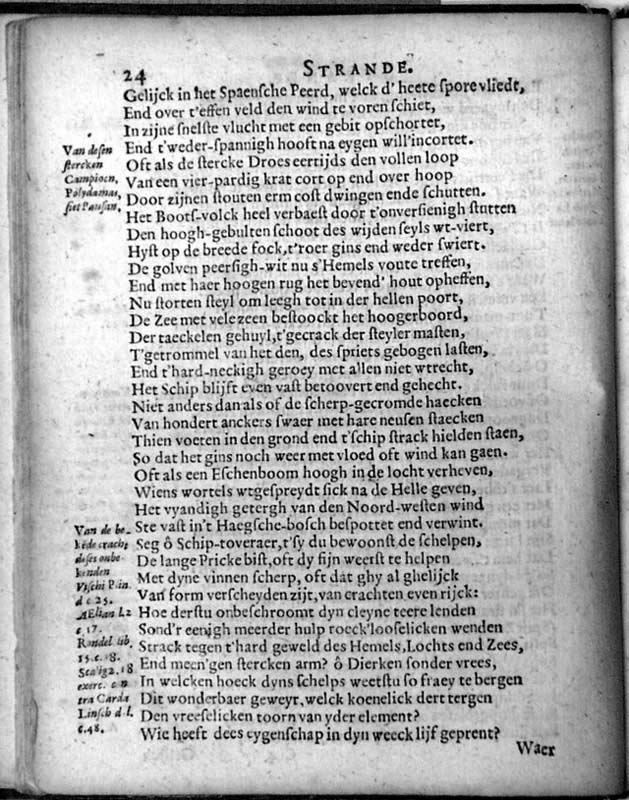 24 STRANDE.
Gelijck in het Spaensche Peerd, welck d'heete spore vliedt,
End over t'effen veld den wind te voren schiet,
In zijne snelste vlucht met een gebit opschorter,
End t'weder-spannigh hooft na eygen will'incortet.
Oft als de stercke Droes eertijds den vollen loop
Van een vier-pardig krat cort op end over hoop
Door zijnen stouten erm cost dwingen ende schutten.
Het Boots-volck heel verbaest door t'onversienigh stutten
Den hoogh-gebulten schoot des wijden seyls wt-viert,
Hyst op de breede fock, t'roer gins end weder swiert.
De golven peersigh-wit nu s'Hemels voute treffen,
End met haer hoogen rug het bevend' hout opheffen,
Nu storten steyl om leegh tot in der hellen poort,
De Zee met vele zeen bestoockt het hoogerboord,
Der taeckelen gehuyl, t'gecrack der steyler masten,
T'getrommel van het den, des spriets gebogen lasten,
End t'hard-neckigh geroey met allen niet wtrecht,
Het Schip blijft even vast betoovert end gehecht.
Niet anders dan als of de scherp-gecromde haecken
Van hondert anckers swaer met hare neusen staecken
Thien voeten in den grond end t'schip strack hielden staen,
So dat het gins noch weer met vloed oft wind kan gaen.
Oft als een Eschenboom hoogh in de locht verheven,
Wiens wortels wtgespreydt sick na de Helle geven,
Het vyandigh getergh van den Noord-westen wind
Ste vast in't Haegsche-bosch bespottet end verwint.
Seg ô Schip-toveraer, t'sy du bewoonst de schelpen,
De lange Pricke bist, oft dy sijn weerst te helpen
Met dyne vinnen scherp, oft dat ghy al ghelijck
Van form verscheyden zijt, van crachten even rijck:
Hoe derstu onbeschroomt dyn cleyne teere lenden
Sond'r eenigh meerder hulp roeck'looselicken wenden
Strack tegen t'hard geweld des Hemels, Lochts end Zees,
End meen'gen stercken arm? ô Dierken sonder vrees,
In welcken hoeck dyns schelps weetstu so fraey te bergen
Dit wonderbaer geweyr, welck koenelick dert tergen
Den vreeselicken toorn van yder element?
Wie heeft dees eygenschap in dyn weeck lijf geprent?
Waer
Van desen
stercken
Campioen,
Polydamas,
siet Pausan.
Van de be-
kende cracht
deses onbe
kenden
Vischi Plin.
d c 25.
AElian l. 2
c 17.
Rondel lib.
15. c. 18.
Scalig 2. 18
exerc. con
tra Carda
Linsch d l.
c. 48.